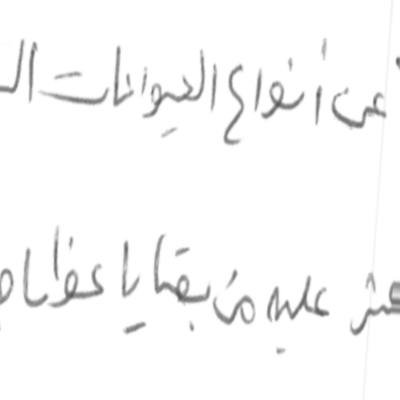 عن أنواع الحيوانات ال
عثر عليه من بقايا عظام